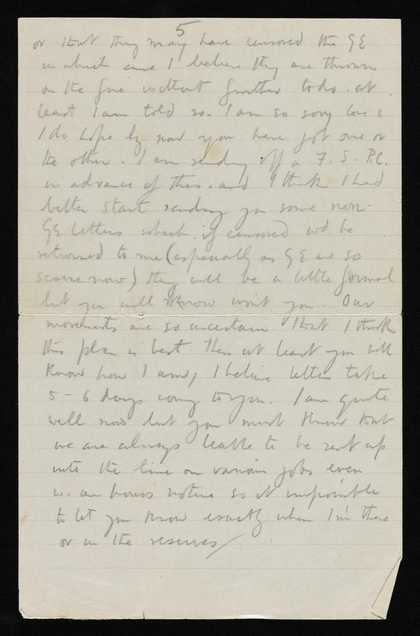 5
or that they may have censored the GE
in which case I believe they are thrown
on the fire without further todo. at
least I am told so. I am so sorry love &
I do hope by now you have got one or
the other. I am sending off a F. S. P.C.
in advance of this. and I think I had
better start sending you some non-
GE letters which if censored wd be
returned to me (especially as GE are so
scarce now) they will be a little formal
but you will know won't you. Our
movements are so uncertain that I think
this plan is best. Then at least you will
know how I am, I believe letters take
5-6 days going to you. I am quite
well now but you must know that
we are always liable to be sent up
into the line on various jobs even
in an hours notice so it impossible
to let you know exactly when I'm there
or in the reserves/